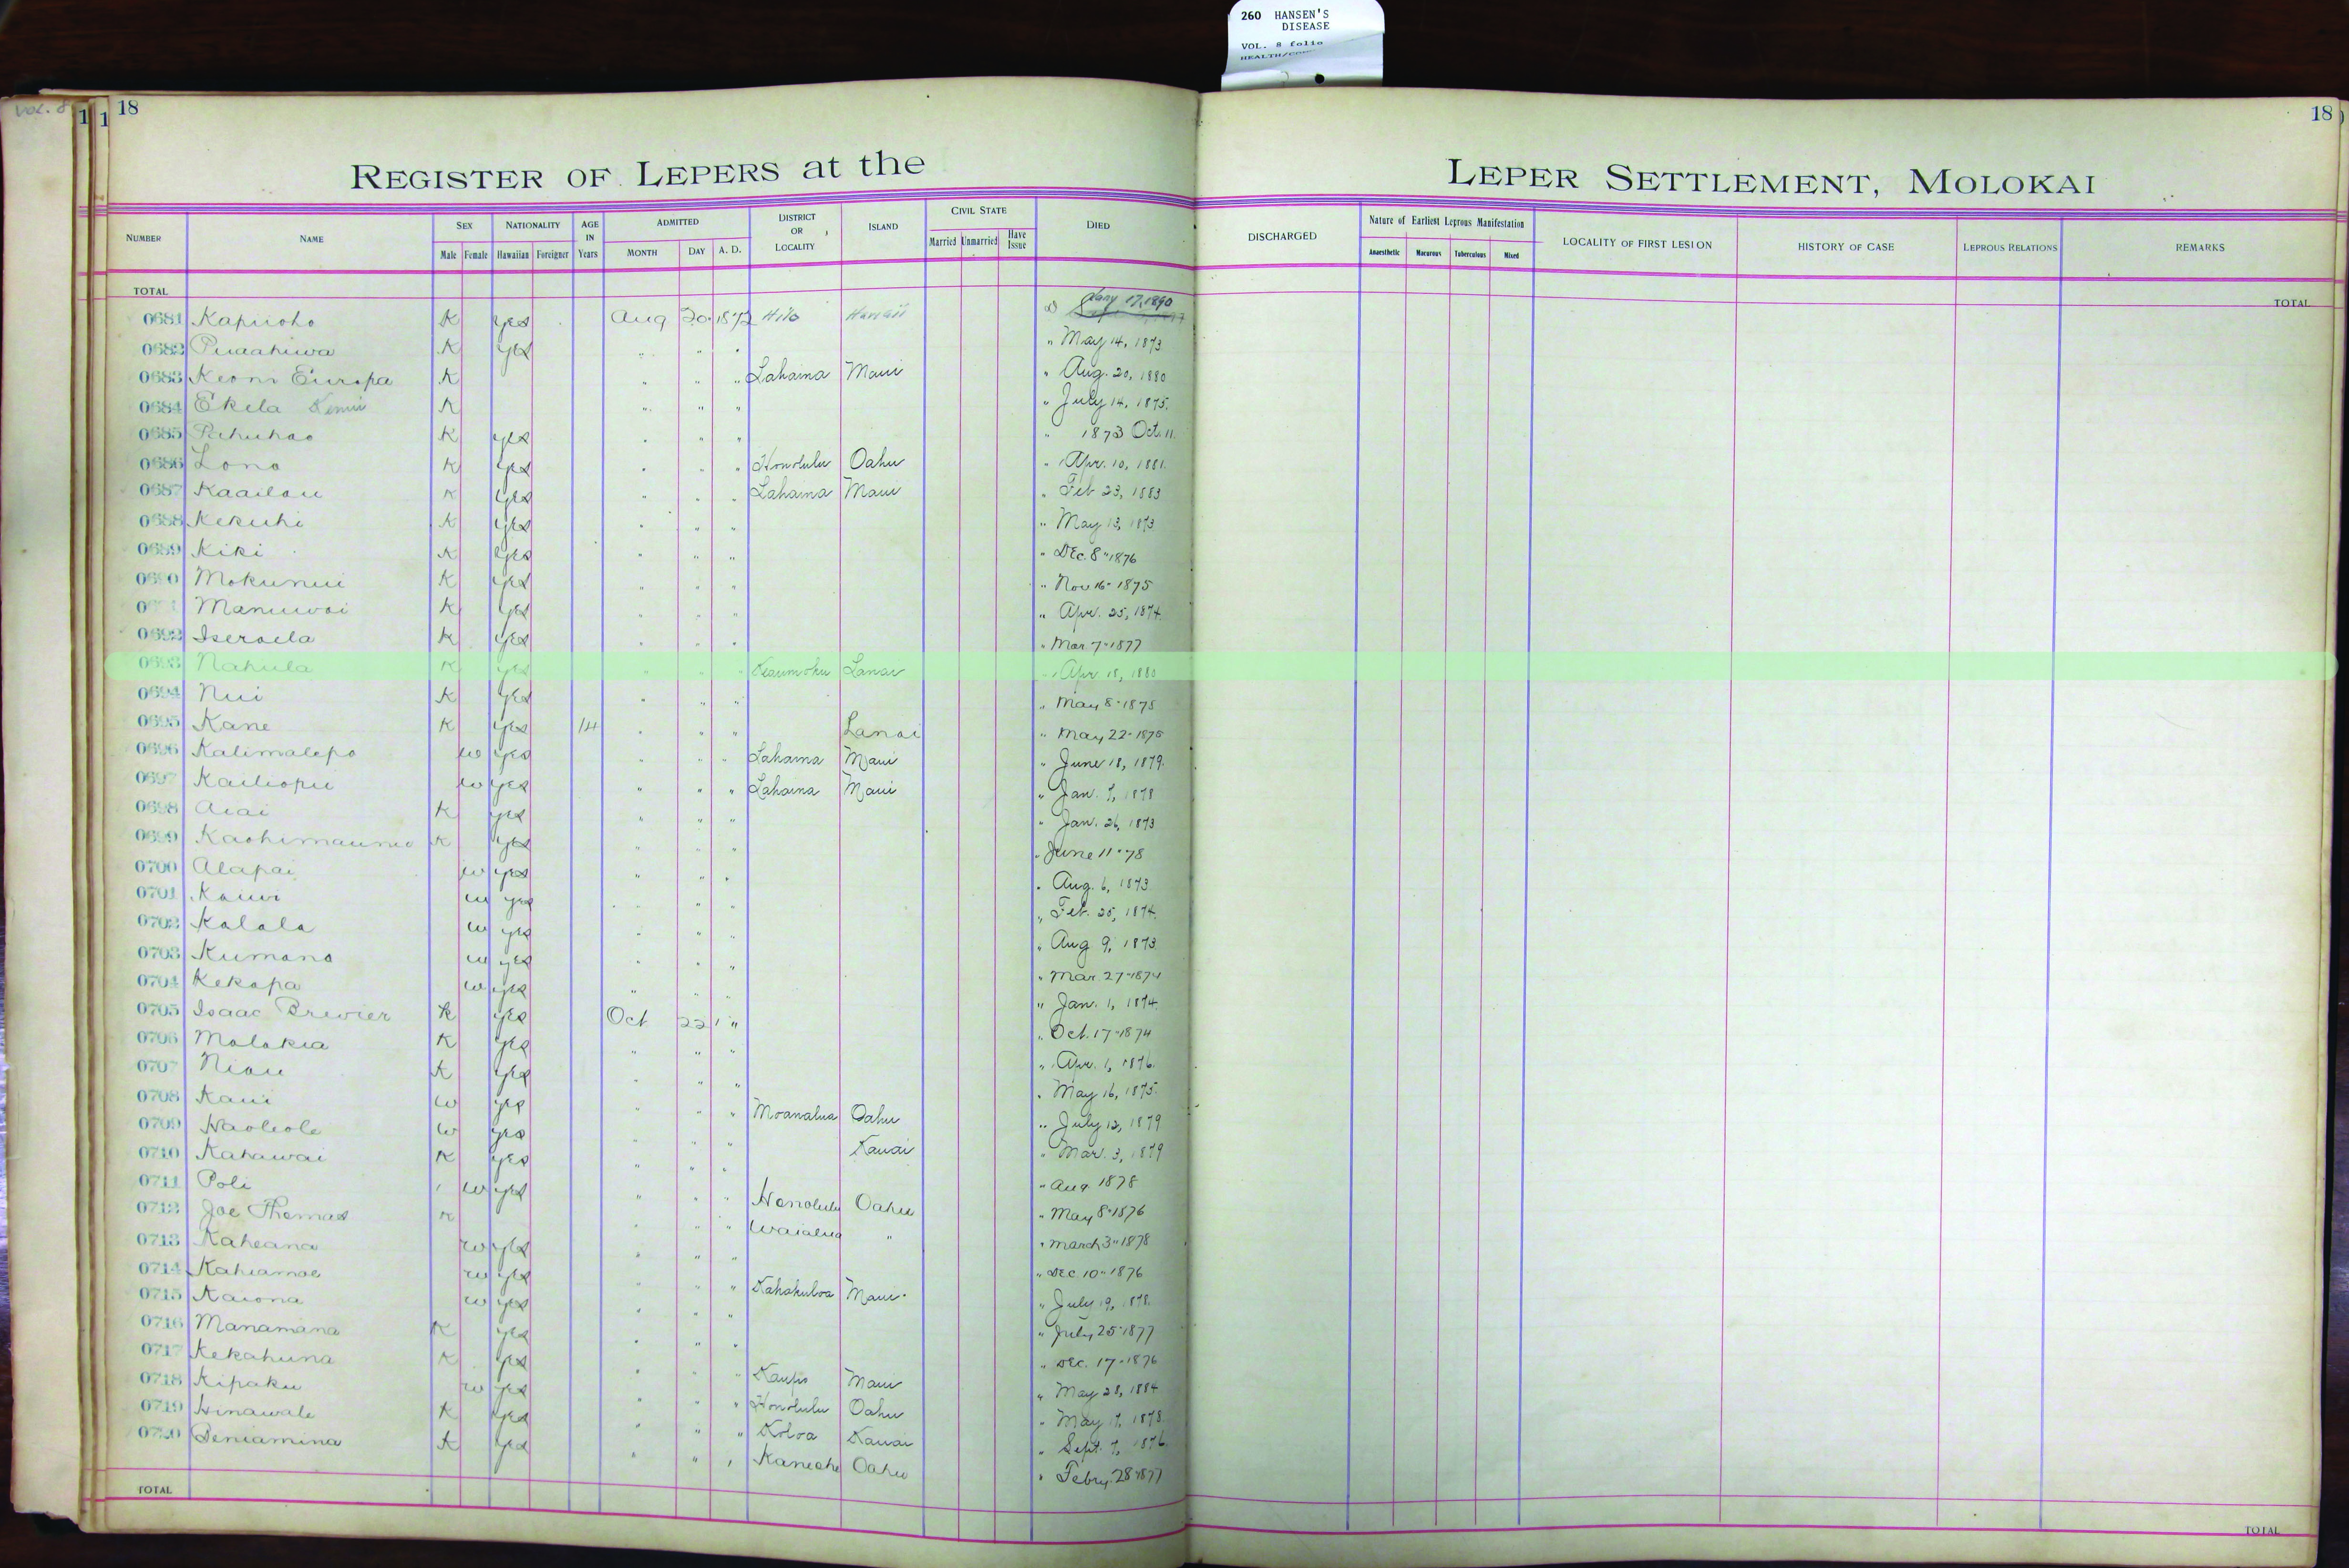 260 HANSEN'S
DISEASE
VOL. 8 folio
VOL. 8
18
18
REGISTER OF LEPERS at the LEPER SETTLEMENT, MOLOKAI
NUMBER NAME SEX Male Female NATIONALITY Hawaiian Foreigner AGE IN Years ADMITTED MONTH DAY A. D. DISTRICT OR LOCALITY ISLAND CIVIL STATE Married Unmarried Have Issue DIED DISCHARGED Nature of Earliest Leprous Manifestation Anaesthetic Macurous Tuberculous Mixed LOCALITY OF FIRST LESION HISTORY OF CASE LEPROUS RELATIONS REMARKS
TOTAL TOTAL
0681 Kapiioho K yes Aug 20 1872 Hilo Hawaii Jany 17, 1890
0682 Puaahiwa K yes " " " " May 14, 1873
0683 Keoni Europa K " " " Lahaina Maui " Aug. 20, 1880
0684 Ekela K " " " " July 14, 1875
0685 Pahuhao K yes " " " " 1873 Oct. 11
0686 Lono K yes " " " Honolulu Oahu " Apr. 10, 1881
0687 Kaailau K yes " " " Lahaina Maui " Feb 23, 1883
0688 Kekuhi K yes " " " " May 13, 1873
0689 Kiki K yes " " " " Dec. 8" 1876
0690 Mokunui K yes " " " " Nov 16" 1875
Manuwai K yes " " " " Apr. 25, 1874
0692 Iseraela K yes " " " " Mar 7" 1877
0693 Nahula K yes " " " Keaumoku Lanai " Apr 18, 1880
0694 Nui K yes " " " " May 8" 1878
0695 Kane K yes 14 " " " Lanai " May 22" 1878
0696 Kalimalepo w yes " " " Lahaina Maui " June 18, 1879
0697 Kailiopu w yes " " " Lahaina Maui " Jan. 7, 1878
0698 Aiai K yes " " " " Jan. 26, 1873
0699 K yes " " " " June 11" 78
0700 Alapai w yes " " " " Aug. 6, 1873
0701 Kauwi w yes " " " " Feb. 25, 1874
0702 Kalala w yes " " " " Aug 9, 1873
0703 Kumano w yes " " " " Mar 27" 1874
0704 Kekapa w yes " " " " Jan. 1, 1874
0705 Isaac Brewier K yes Oct 22 " " Oct. 17" 1874
0706 Molokia K yes " " " " Apr. 1, 1876
0707 Niau K yes " " " " May 16, 1875
0708 Kaui w yes " " " Moanalua Oahu " July 12, 1879
0709 Haoleole w yes " " " Kauai " Mar. 3, 1879
0710 Kahawai K yes " " " " Aug 1878
0711 Poli w yes " " " Honolulu Oahu " May 8" 1876
0712 Joe Thomas K " " " Waialua " " March 3" 1878
0713 Kaheana w yes " " " " Dec 10" 1876
0714 Kahiamoe w yes " " " Kahakuloa Maui " July 19, 1878
0715 Kaiona w yes " " " " July 25" 1877
0716 Manamana K yes " " " " Dec. 17" 1876
0717 Kekahuna K yes " " " Kaupo Maui " May 28, 1884
0718 Kipaku w yes " " " Honolulu Oahu " May 17, 1878
0719 Hinawale K yes " " " Koloa Kauai " Sept. 7, 1876
0720 Beniamina K yes " " " Kaneohe Oahu " Febry. 28" 1877
TOTAL TOTAL